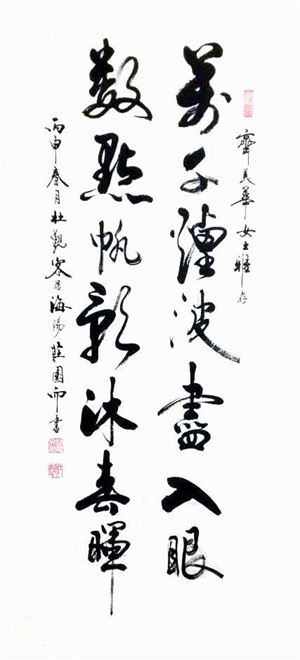 齊美華女士雅存
萬千煙波盡入眼
數點帆影沐春暉
丙申春月杜觀客居海陽莊園而書